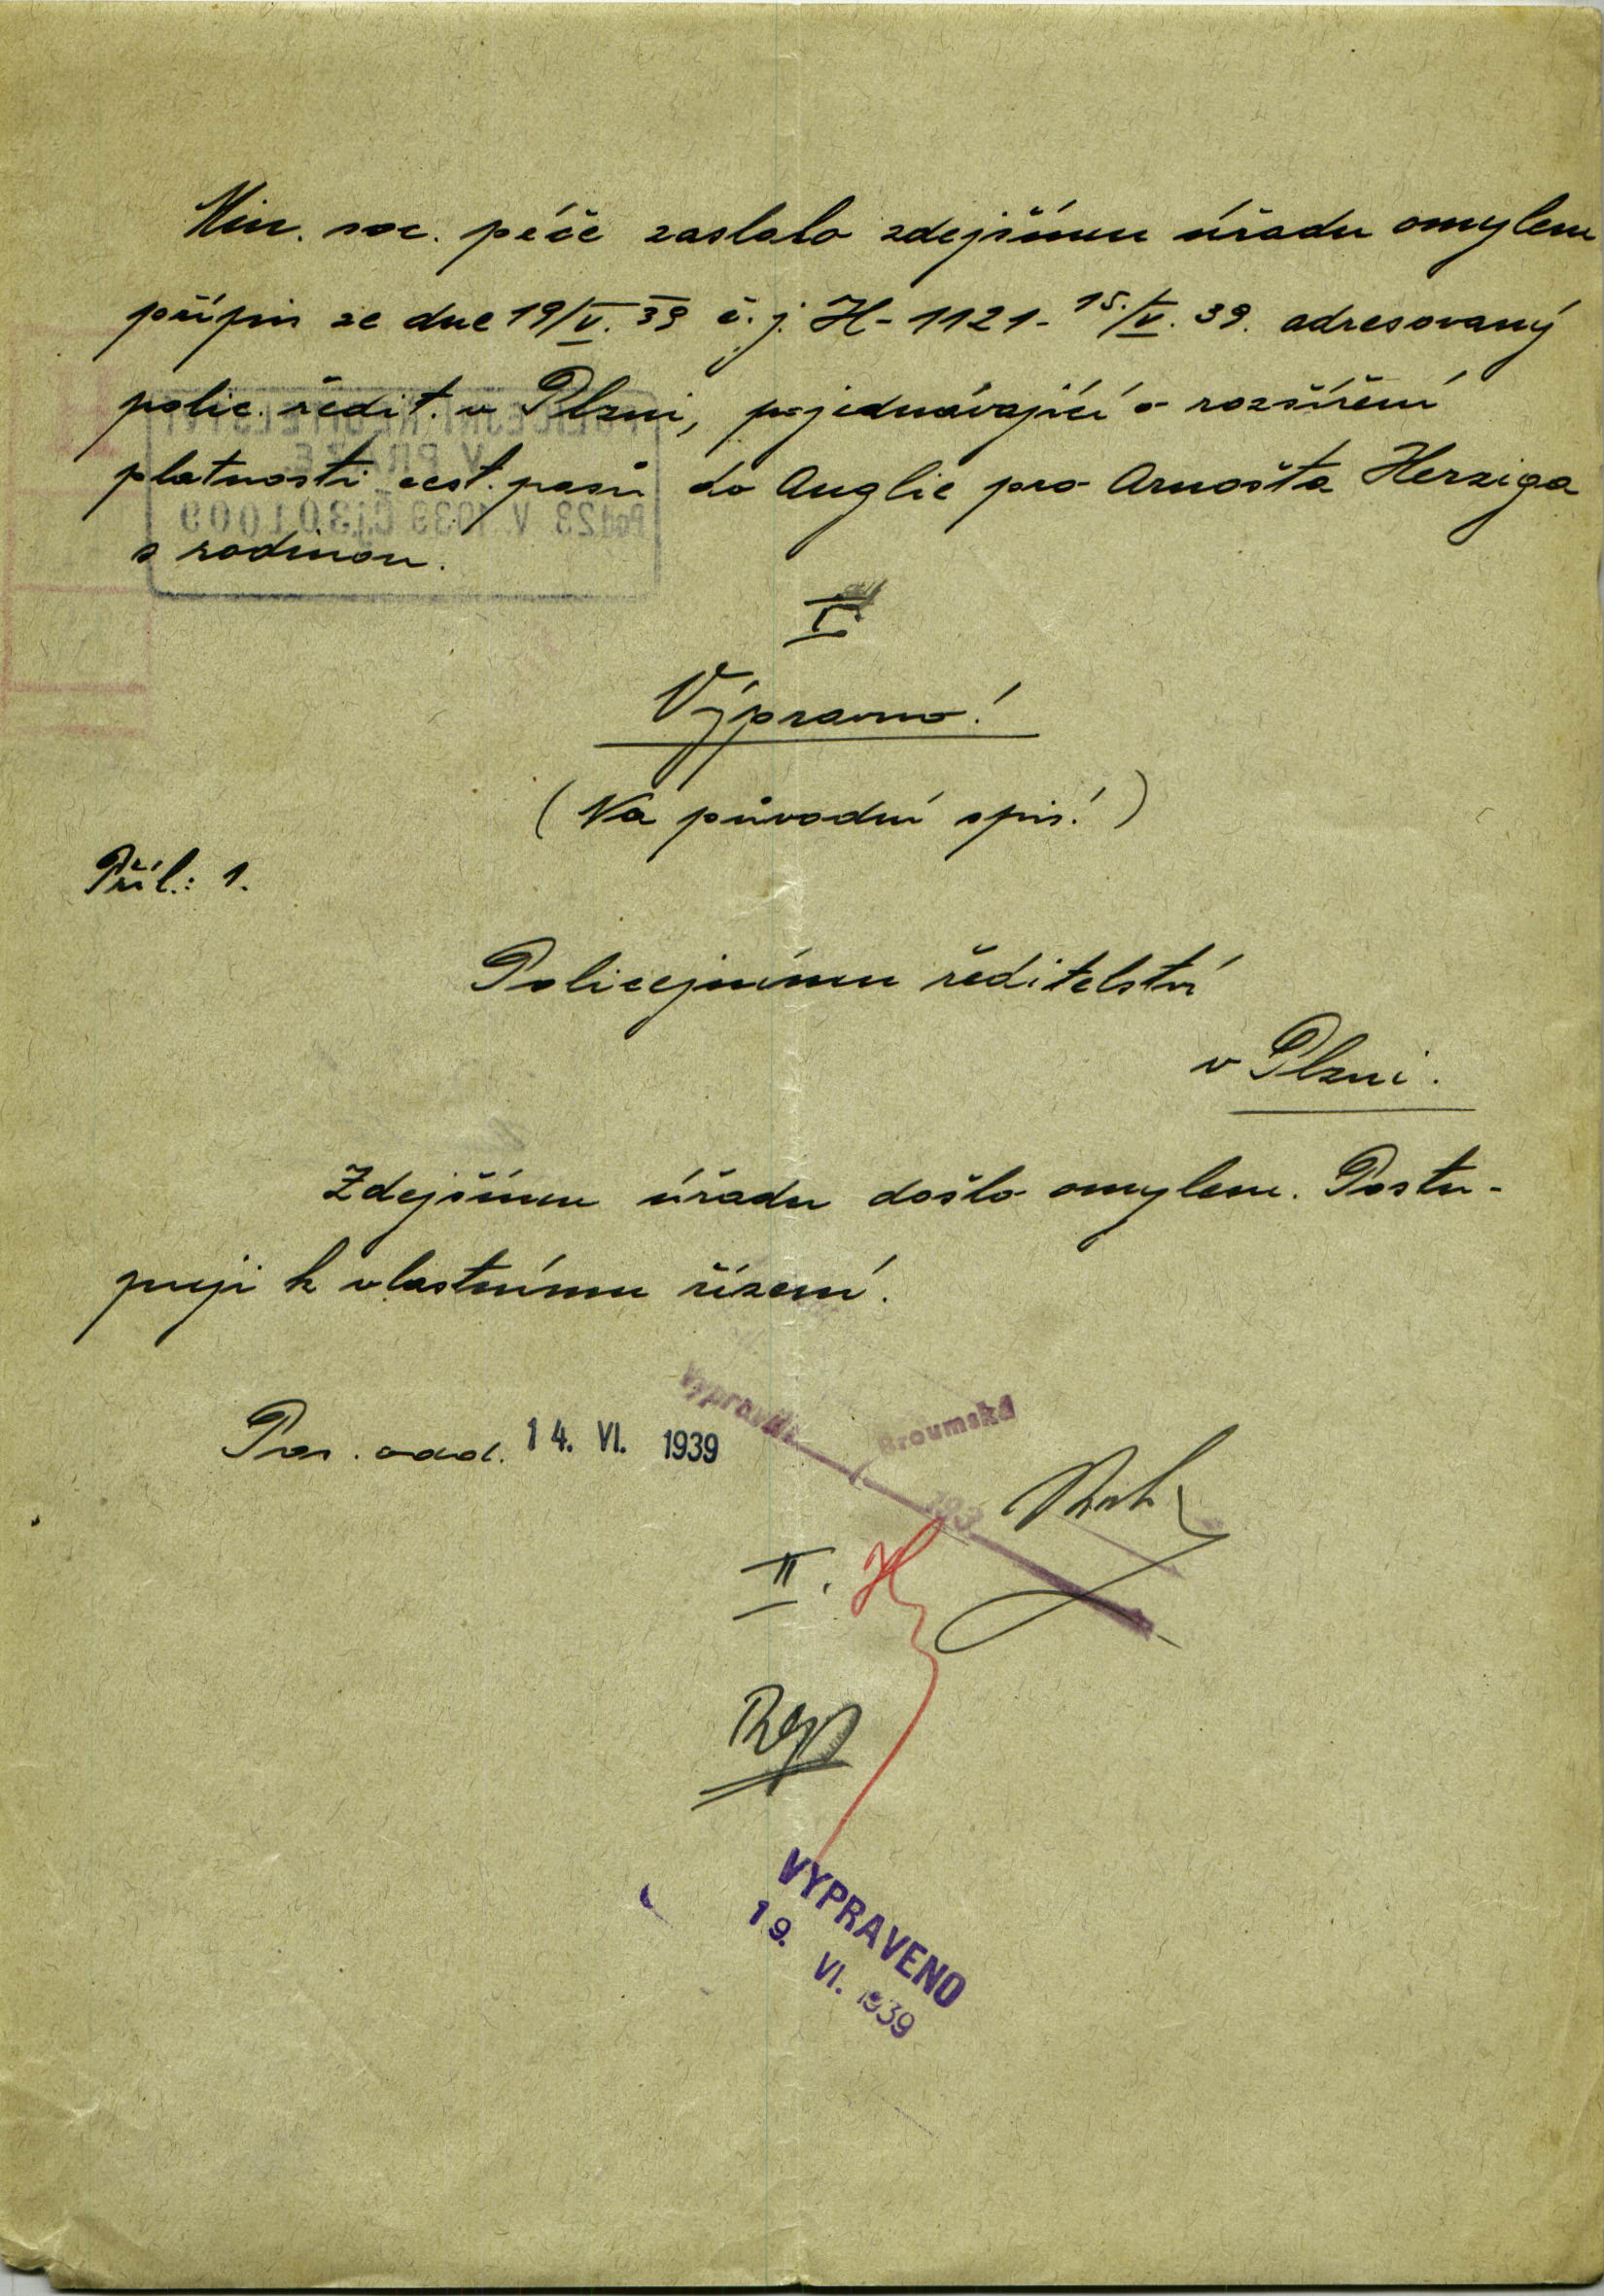 Min. soc. péče zaslalo zdejšímu úřadu omylem
přípis ze dne 19/V. 39 č. j. H - 1121 - 15./V. 39. adresovaný
polic. ředit. v Plzni, pojednávající o rozšíření
platnosti cest. pasů do Anglie pro Arnošta Herziga
s rodinou.
POLICEJNÍ ŘEDITELSTVÍ
V PRAZE
Pod 23 V. 1939 Čj:301009
I.
Výpravno!
(Na původní spis!)
Příl.: 1.
Policejnímu ředitelství
v Plzni.
Zdejšímu úřadu došlo omylem. Postu-
puji k vlastnímu řízení.
Vypravili:
Broumská
Pas. odd. 14. VI. 1939
193
II.
VYPRAVENO
19. VI. 1939